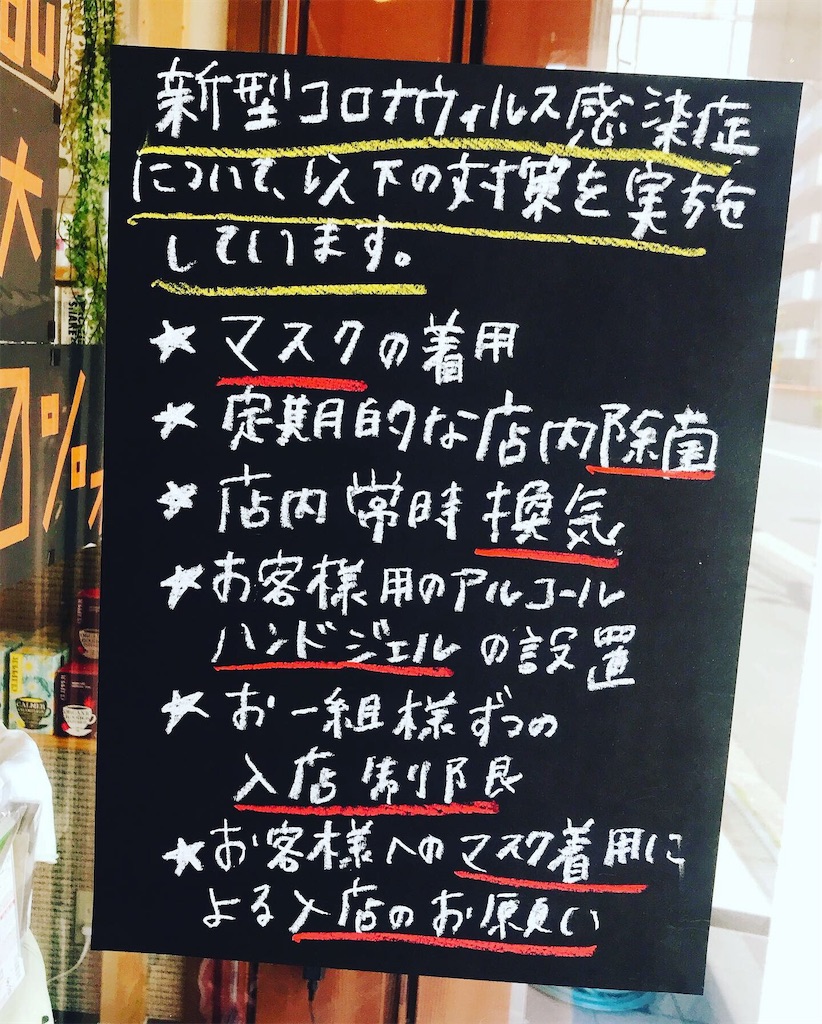 新型コロナウィルス感染症
について、以下の対策を実施
しています。
★マスクの着用
★定期的な店内除菌
★店内常時換気
★お客様用のアルコール
ハンドジェルの設置
★お一組様ずつの
入店制限
★お客様へのマスク着用に
よる入店のお願い
大
0%
CLIPPER